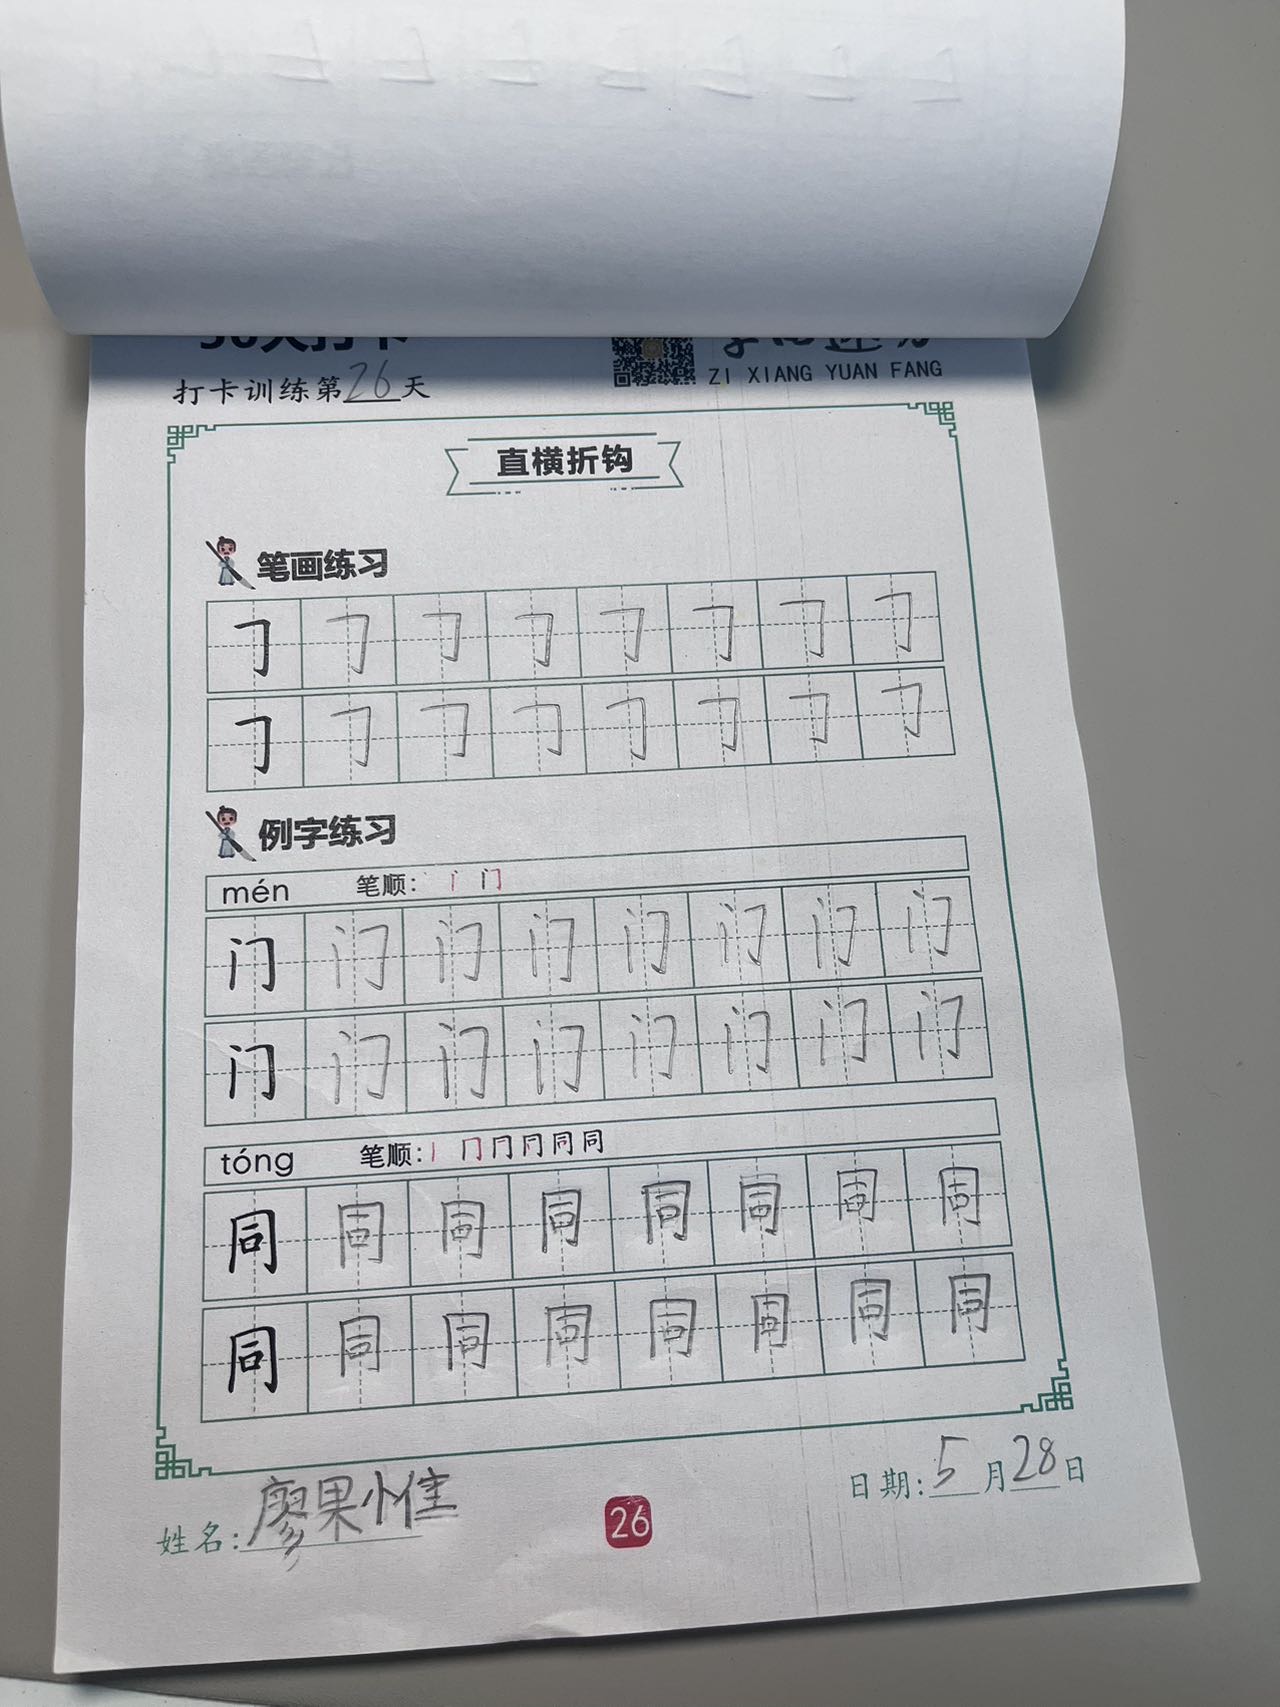 打卡训练第26天
ZI XIANG YUAN FANG
直横折钩
笔画练习
㇆ ㇆ ㇆ ㇆ ㇆ ㇆ ㇆ ㇆
㇆ ㇆ ㇆ ㇆ ㇆ ㇆ ㇆ ㇆
例字练习
mén 笔顺: 门
门 门 门 门 门 门 门 门
门 门 门 门 门 门 门 门
tóng 笔顺: 丨 冂 冂 同 同
同 同 同 同 同 同 同 同
同 同 同 同 同 同 同 同
姓名: 廖果惟
26
日期: 5月28日